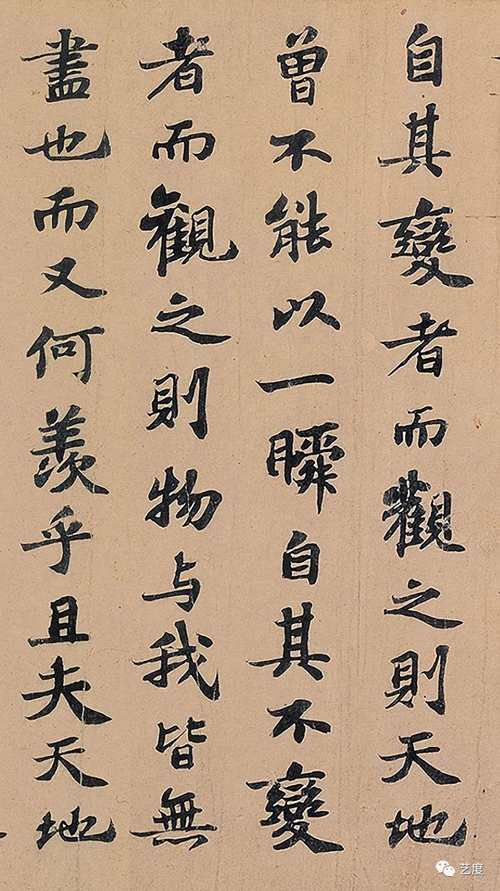 自其變者而觀之則天地
曾不能以一瞬自其不變
者而觀之則物与我皆無
盡也而又何羨乎且夫天地
艺度